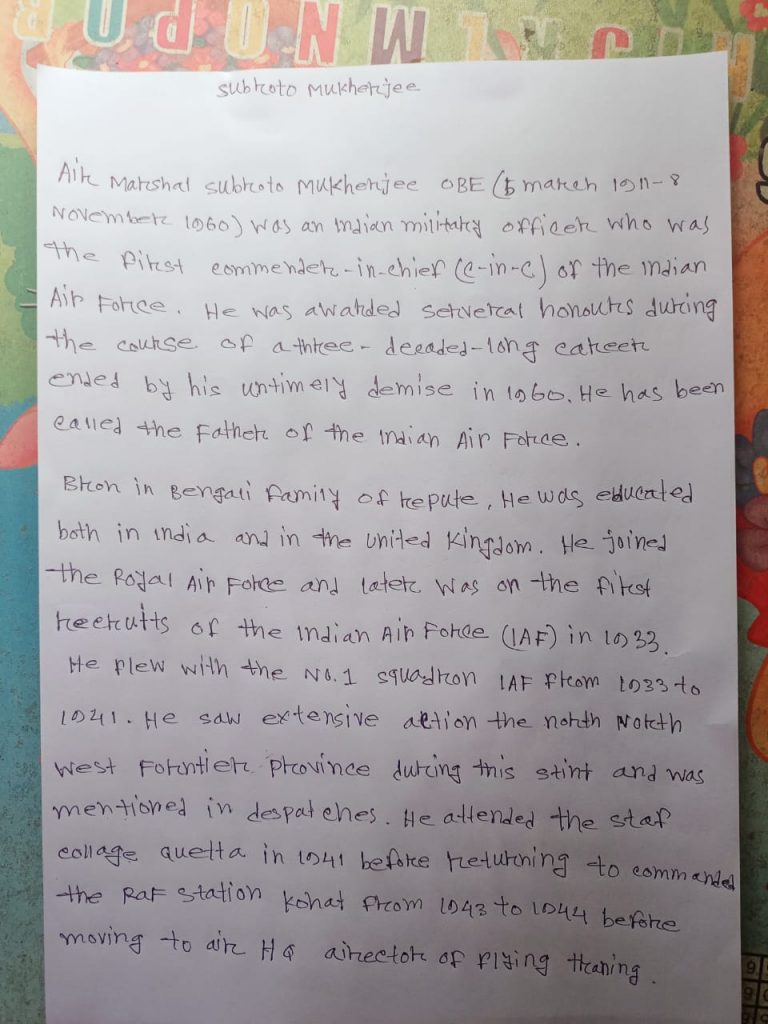 Subroto Mukherjee
Air Marshal Subroto Mukherjee OBE (5 march 1911-8
November 1960) was an Indian military officer who was
the first commender-in-chief (C-in-C) of the Indian
Air Force. He was awarded serveral honours during
the course of a three-decaded-long career
ended by his untimely demise in 1960. He has been
called the Father of the Indian Air Force.
Bron in Bengali family of repute, He was educated
both in india and in the United Kingdom. He joined
the Royal Air Force and later was on the first
recrutts of the Indian Air Force (IAF) in 1933.
He flew with the No.1 squadron IAF from 1933 to
1941. He saw extensive action the north North
West Forntier province during this stint and was
mentioned in despatches. He attended the staf
collage quetta in 1941 before returning to commanded
the RAF Station Kohat from 1943 to 1944 before
moving to air HQ airector of flying traning.